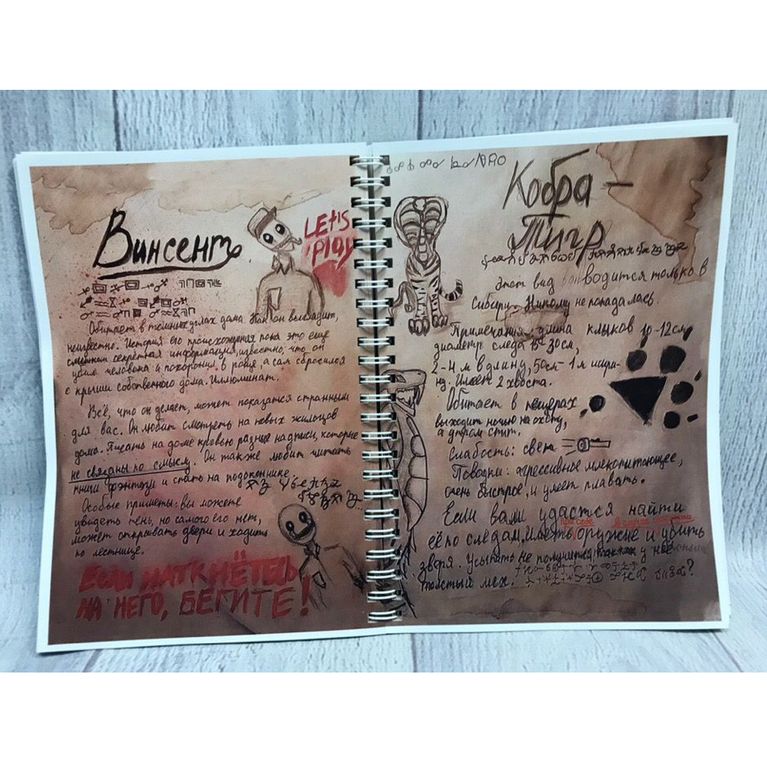 Винсентъ
LET'S
PLAY
Обитает в тёмных углах дома. Как он выглядит,
неизвестно. История его происхождения пока это ещё
секретная информация, известно, что он
убил человека и похоронил в роще, а сам сбросился
с крыши собственного дома. Иллюминат.
Всё, что он делает, может показаться странным
для вас. Он любит смотреть на новых жильцов
дома. Писать на доме кровью разные надписи, которые
не связаны по смыслу. Он также любит читать
книги фэнтези и спать на подоконнике.
Особые приметы: вы можете
увидеть тень, но самого его нет,
может открывать двери и ходить
по лестнице.
ЕСЛИ НАТКНЁТЕСЬ
НА НЕГО, БЕГИТЕ!
Кобра-
Тигр
Этот вид водится только в
Сибири. Никому не попадалась.
Примечания: длина клыков 10-12см,
диаметр следа 15-30см,
2-4 м в длину, 50см-1м шири-
ну. Имеет 2 хвоста.
Обитает в пещерах,
выходит ночью на охоту,
а утром спит.
Слабость: свет
Повадки: агрессивное млекопитающее,
очень быстрое, и умеет плавать.
Если вам удастся найти
её по следам, иметь оружие и убить
зверя. Усыпать не получится, у неё
толстый мех.